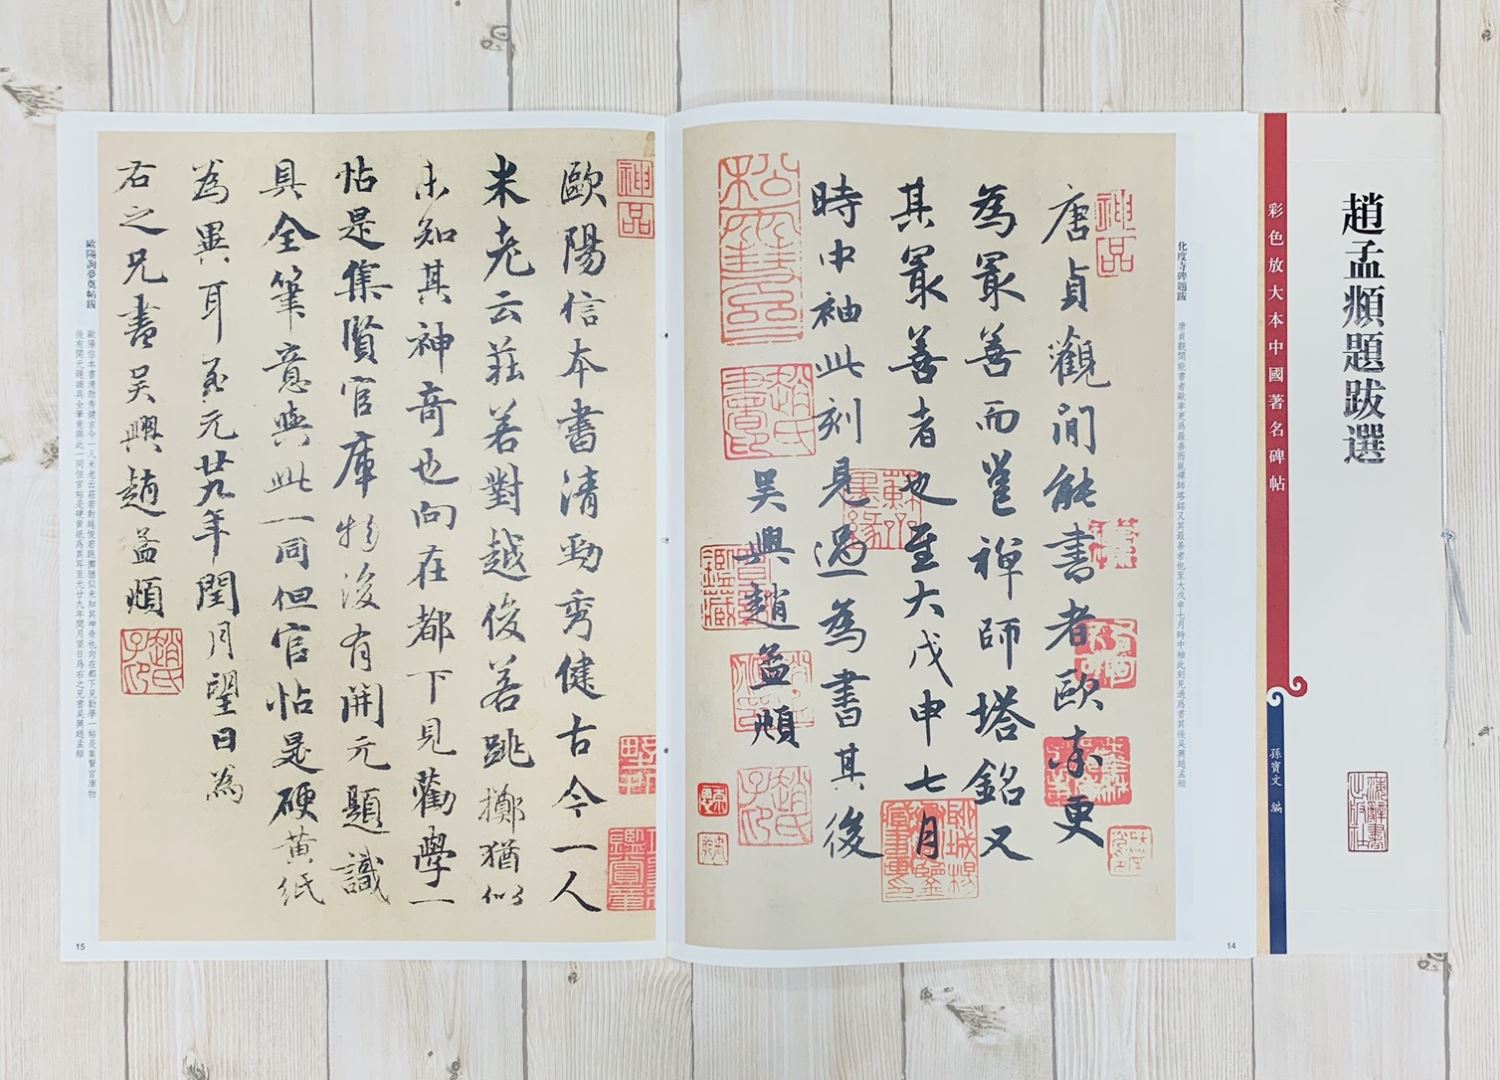 趙孟頫題跋選
彩色放大本中國著名碑帖
孫寶文 編
化度寺碑題跋
唐貞觀間能書者歐率更爲最善而邕禪師塔銘又其最善者也至大戊申七月時中袖此刻見過爲書其後吳興趙孟頫
唐貞觀間能書者歐率更
為最善而邕禪師塔銘又
其最善者也至大戊申七月
時中袖此刻見過為書其後
吳興趙孟頫
神品
松雪齋
趙氏書印
趙氏子昂
14
歐陽信本書清勁秀健古今一人
米老云莊若對越俊若跳擲猶似
未知其神奇也向在都下見勸學一
帖是集賢官庫物後有開元題識
具全筆意與此一同但官帖是硬黃紙
為異耳至元廿九年閏月望日為
右之兄書吳興趙孟頫
神品
趙氏子昂
歐陽詢夢奠帖跋
歐陽信本書清勁秀健古今一人米老云莊若對越俊若跳擲猶似未知其神奇也向在都下見勸學一帖是集賢官庫物
後有開元題識具全筆意與此一同但官帖是硬黃紙爲異耳至元廿九年閏月望日爲右之兄書吳興趙孟頫
15